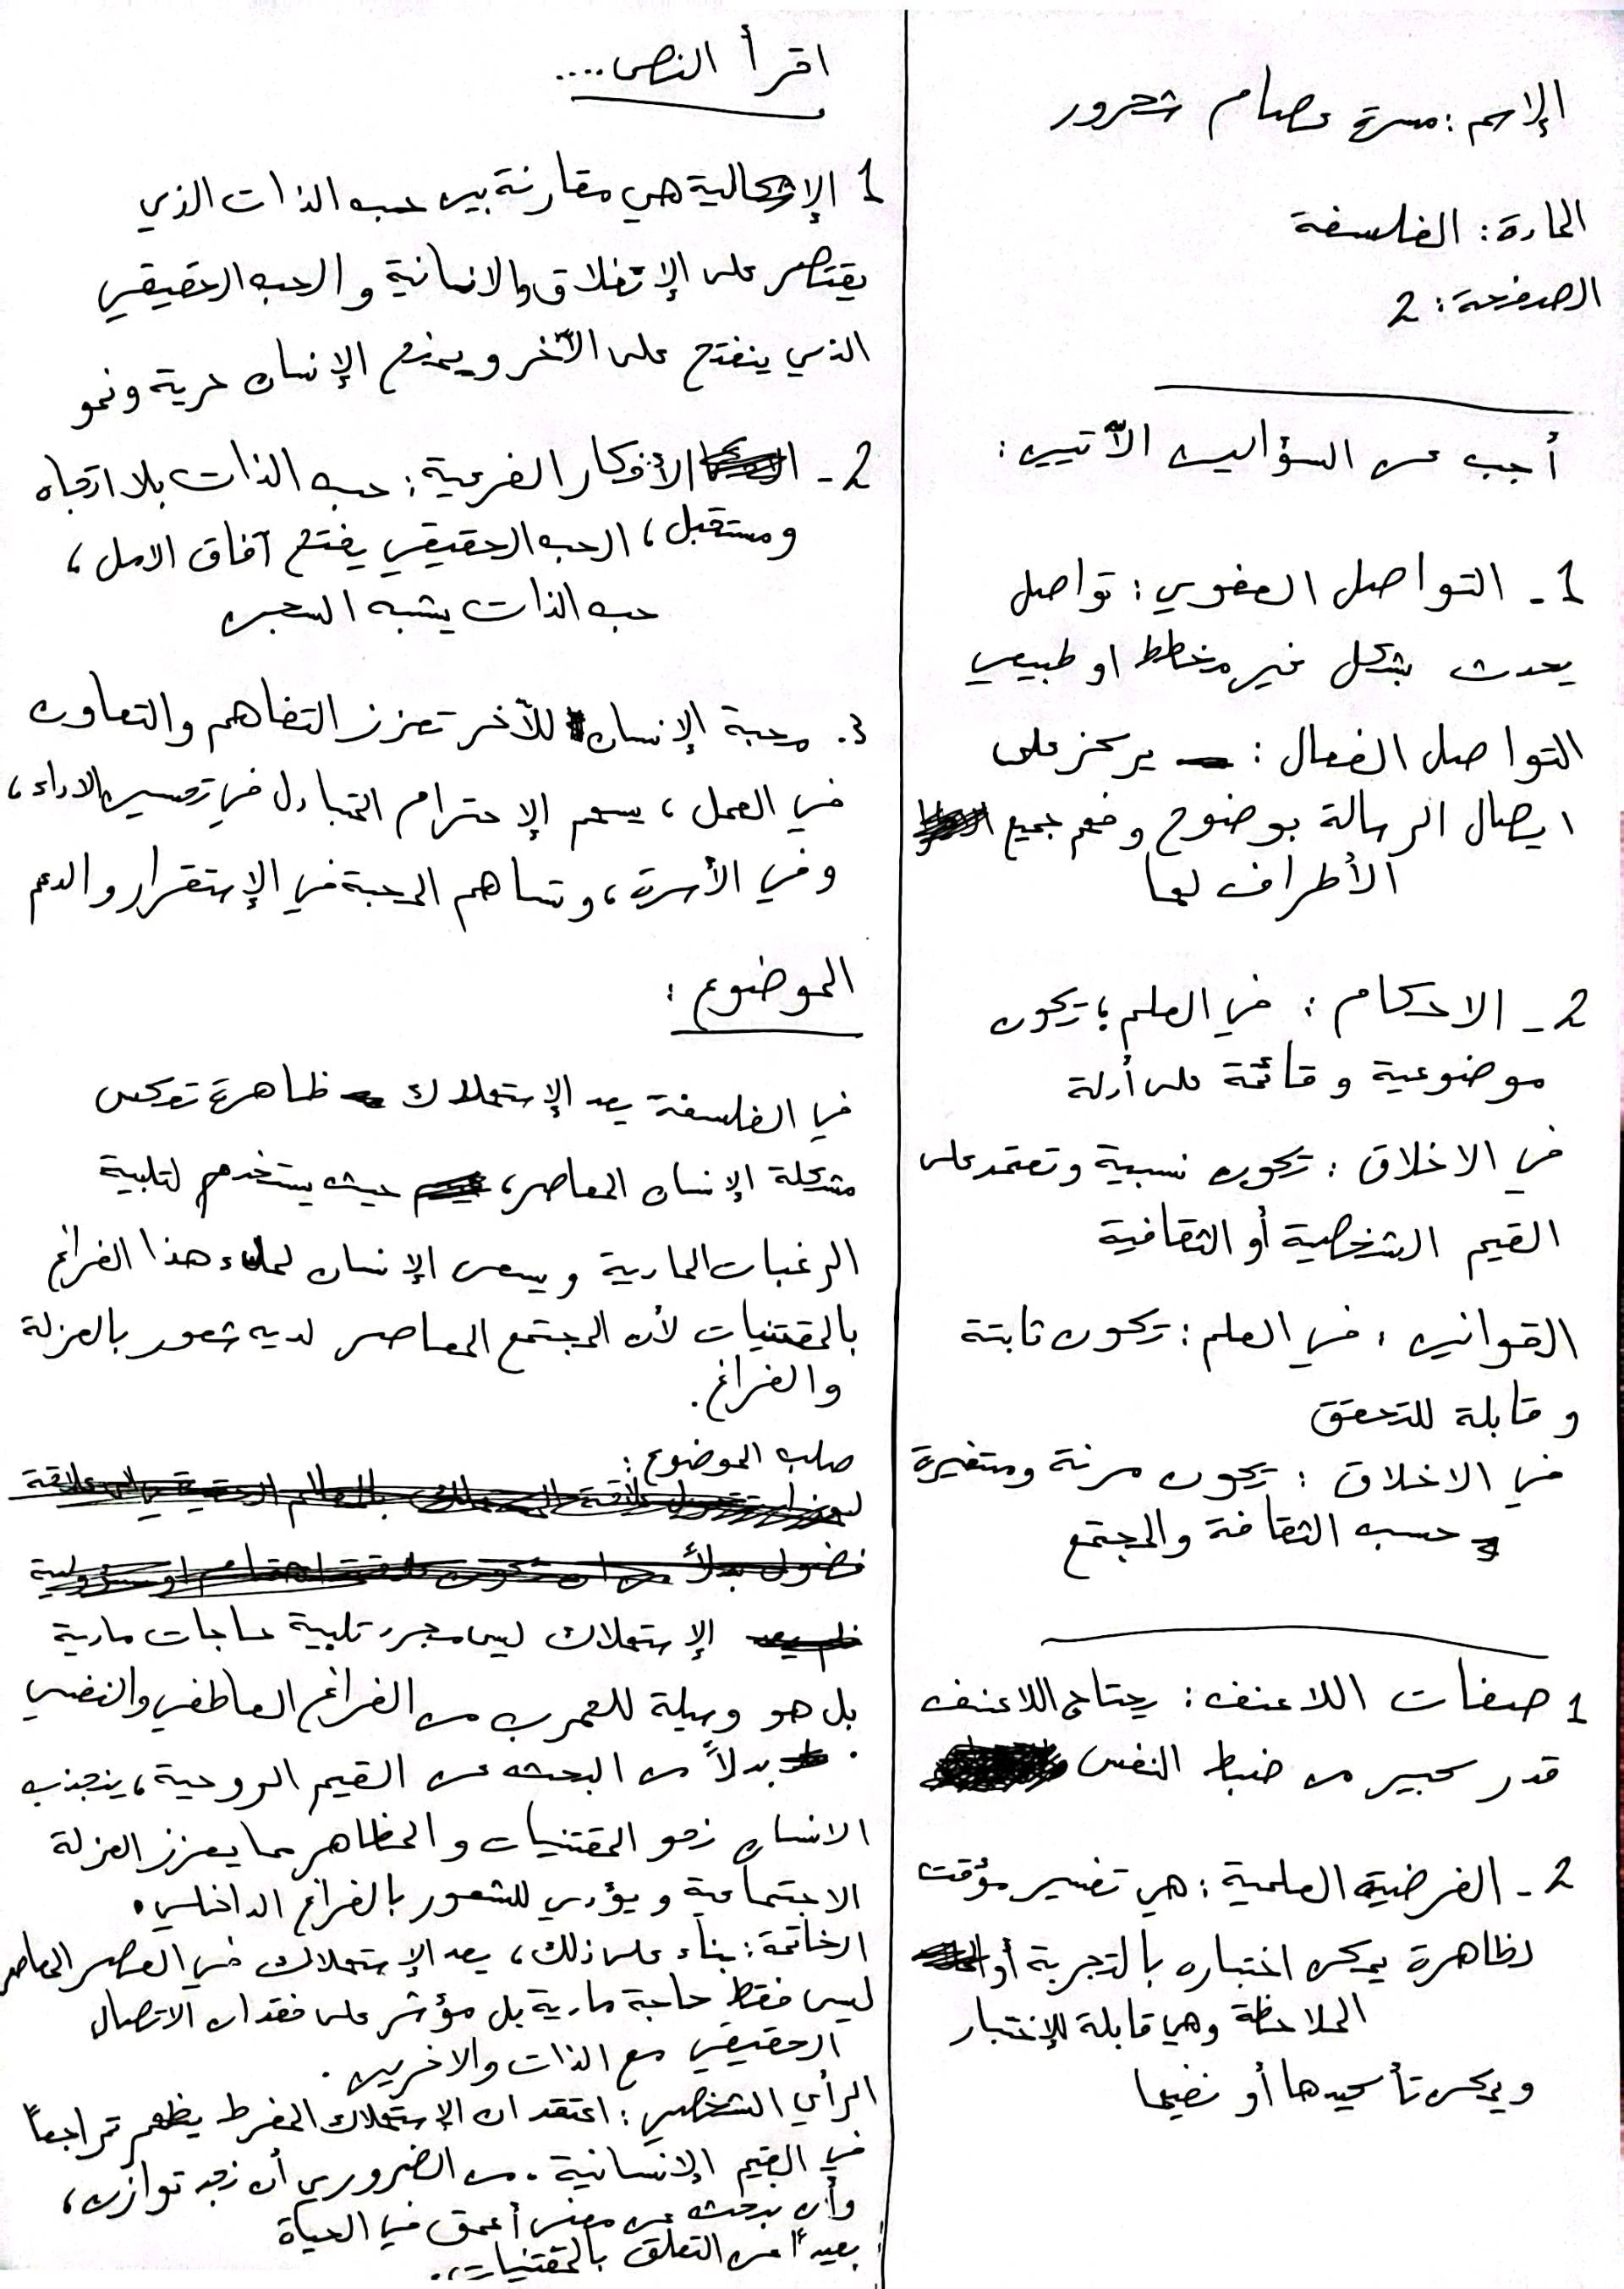 الإسم: مسرة عصام شحرور
المادة: الفلسفة
الصفحة: 2
أجب عن السؤالين الآتيين:
1 - التواصل العفوي: تواصل
يحدث بشكل غير مخطط او طبيعي
التواصل الفعال: يركز على
ايصال الرسالة بوضوح وفهم جميع
الأطراف لها
2 - الاحكام: في العلم: تكون
موضوعية وقائمة على أدلة
في الاخلاق: تكون نسبية وتعتمد على
القيم الشخصية أو الثقافية
القوانين: في العلم: تكون ثابتة
و قابلة للتحقق
في الاخلاق: تكون مرنة ومتغيرة
حسب الثقافة والمجتمع
1 صفات اللاعنف: يحتاج اللاعنف
قدر كبير من ضبط النفس
2 - الفرضية العلمية: هي تفسير مؤقت
لظاهرة يمكن اختباره بالتجربة أو
الملاحظة وهي قابلة للإختبار
ويمكن تأكيدها أو نفيها
اقرأ النص....
1 الإشكالية هي مقارنة بين حب الذات الذي
يقتصر على الإنغلاق والانسانية والحب الحقيقي
الذي ينفتح على الآخر ويمنح الإنسان حرية ونمو
2 - الأفكار الفرعية: حب الذات بلا اتجاه
ومستقبل، الحب الحقيقي يفتح آفاق الامل،
حب الذات يشبه السجن
3. محبة الإنسان للآخر تعزز التفاهم والتعاون
في العمل، يسهم الإحترام المتبادل في تحسين الاداء،
وفي الأسرة، وتساهم المحبة في الإستقرار والدعم
الموضوع:
في الفلسفة يعد الإستهلاك ظاهرة تعكس
مشكلة الإنسان المعاصر، حيث يستخدم لتلبية
الرغبات المادية ويسعى الإنسان لملء هذا الفراغ
بالمقتنيات لأن المجتمع المعاصر لديه شعور بالعزلة
والفراغ.
صلب الموضوع:
الإستهلاك ليس مجرد تلبية حاجات مادية
بل هو وسيلة للهرب من الفراغ العاطفي والنفسي
. بدلاً من البحث عن القيم الروحية، ينجذب
الانسان نحو المقتنيات والمظاهر مما يعزز العزلة
الاجتماعية ويؤدي للشعور بالفراغ الداخلي.
الخاتمة: بناء على ذلك، يعد الإستهلاك في العصر المعاصر
ليس فقط حاجة مادية بل مؤشر على فقدان الاتصال
الحقيقي مع الذات والاخرين.
الرأي الشخصي: اعتقد ان الإستهلاك المفرط يظهر تراجعاً
في القيم الإنسانية. من الضروري أن نجد توازن،
وأن نبحث عن معنى أعمق في الحياة
بعيداً عن التعلق بالمقتنيات..